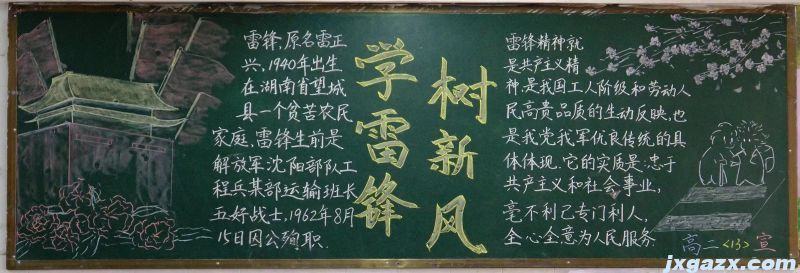 雷锋,原名雷正
兴,1940年出生
在湖南省望城
县一个贫苦农民
家庭.雷锋生前是
解放军沈阳部队工
程兵某部运输班长
五好战士,1962年8月
15日因公殉职.
学雷锋
树新风
雷锋精神就
是共产主义精
神是我国工人阶级和劳动人
民高贵品质的生动反映,也
是我党我军优良传统的具
体体现.它的实质是:忠于
共产主义和社会事业,
毫不利己专门利人,
全心全意为人民服务
高二<13>宣
jxgazx.com